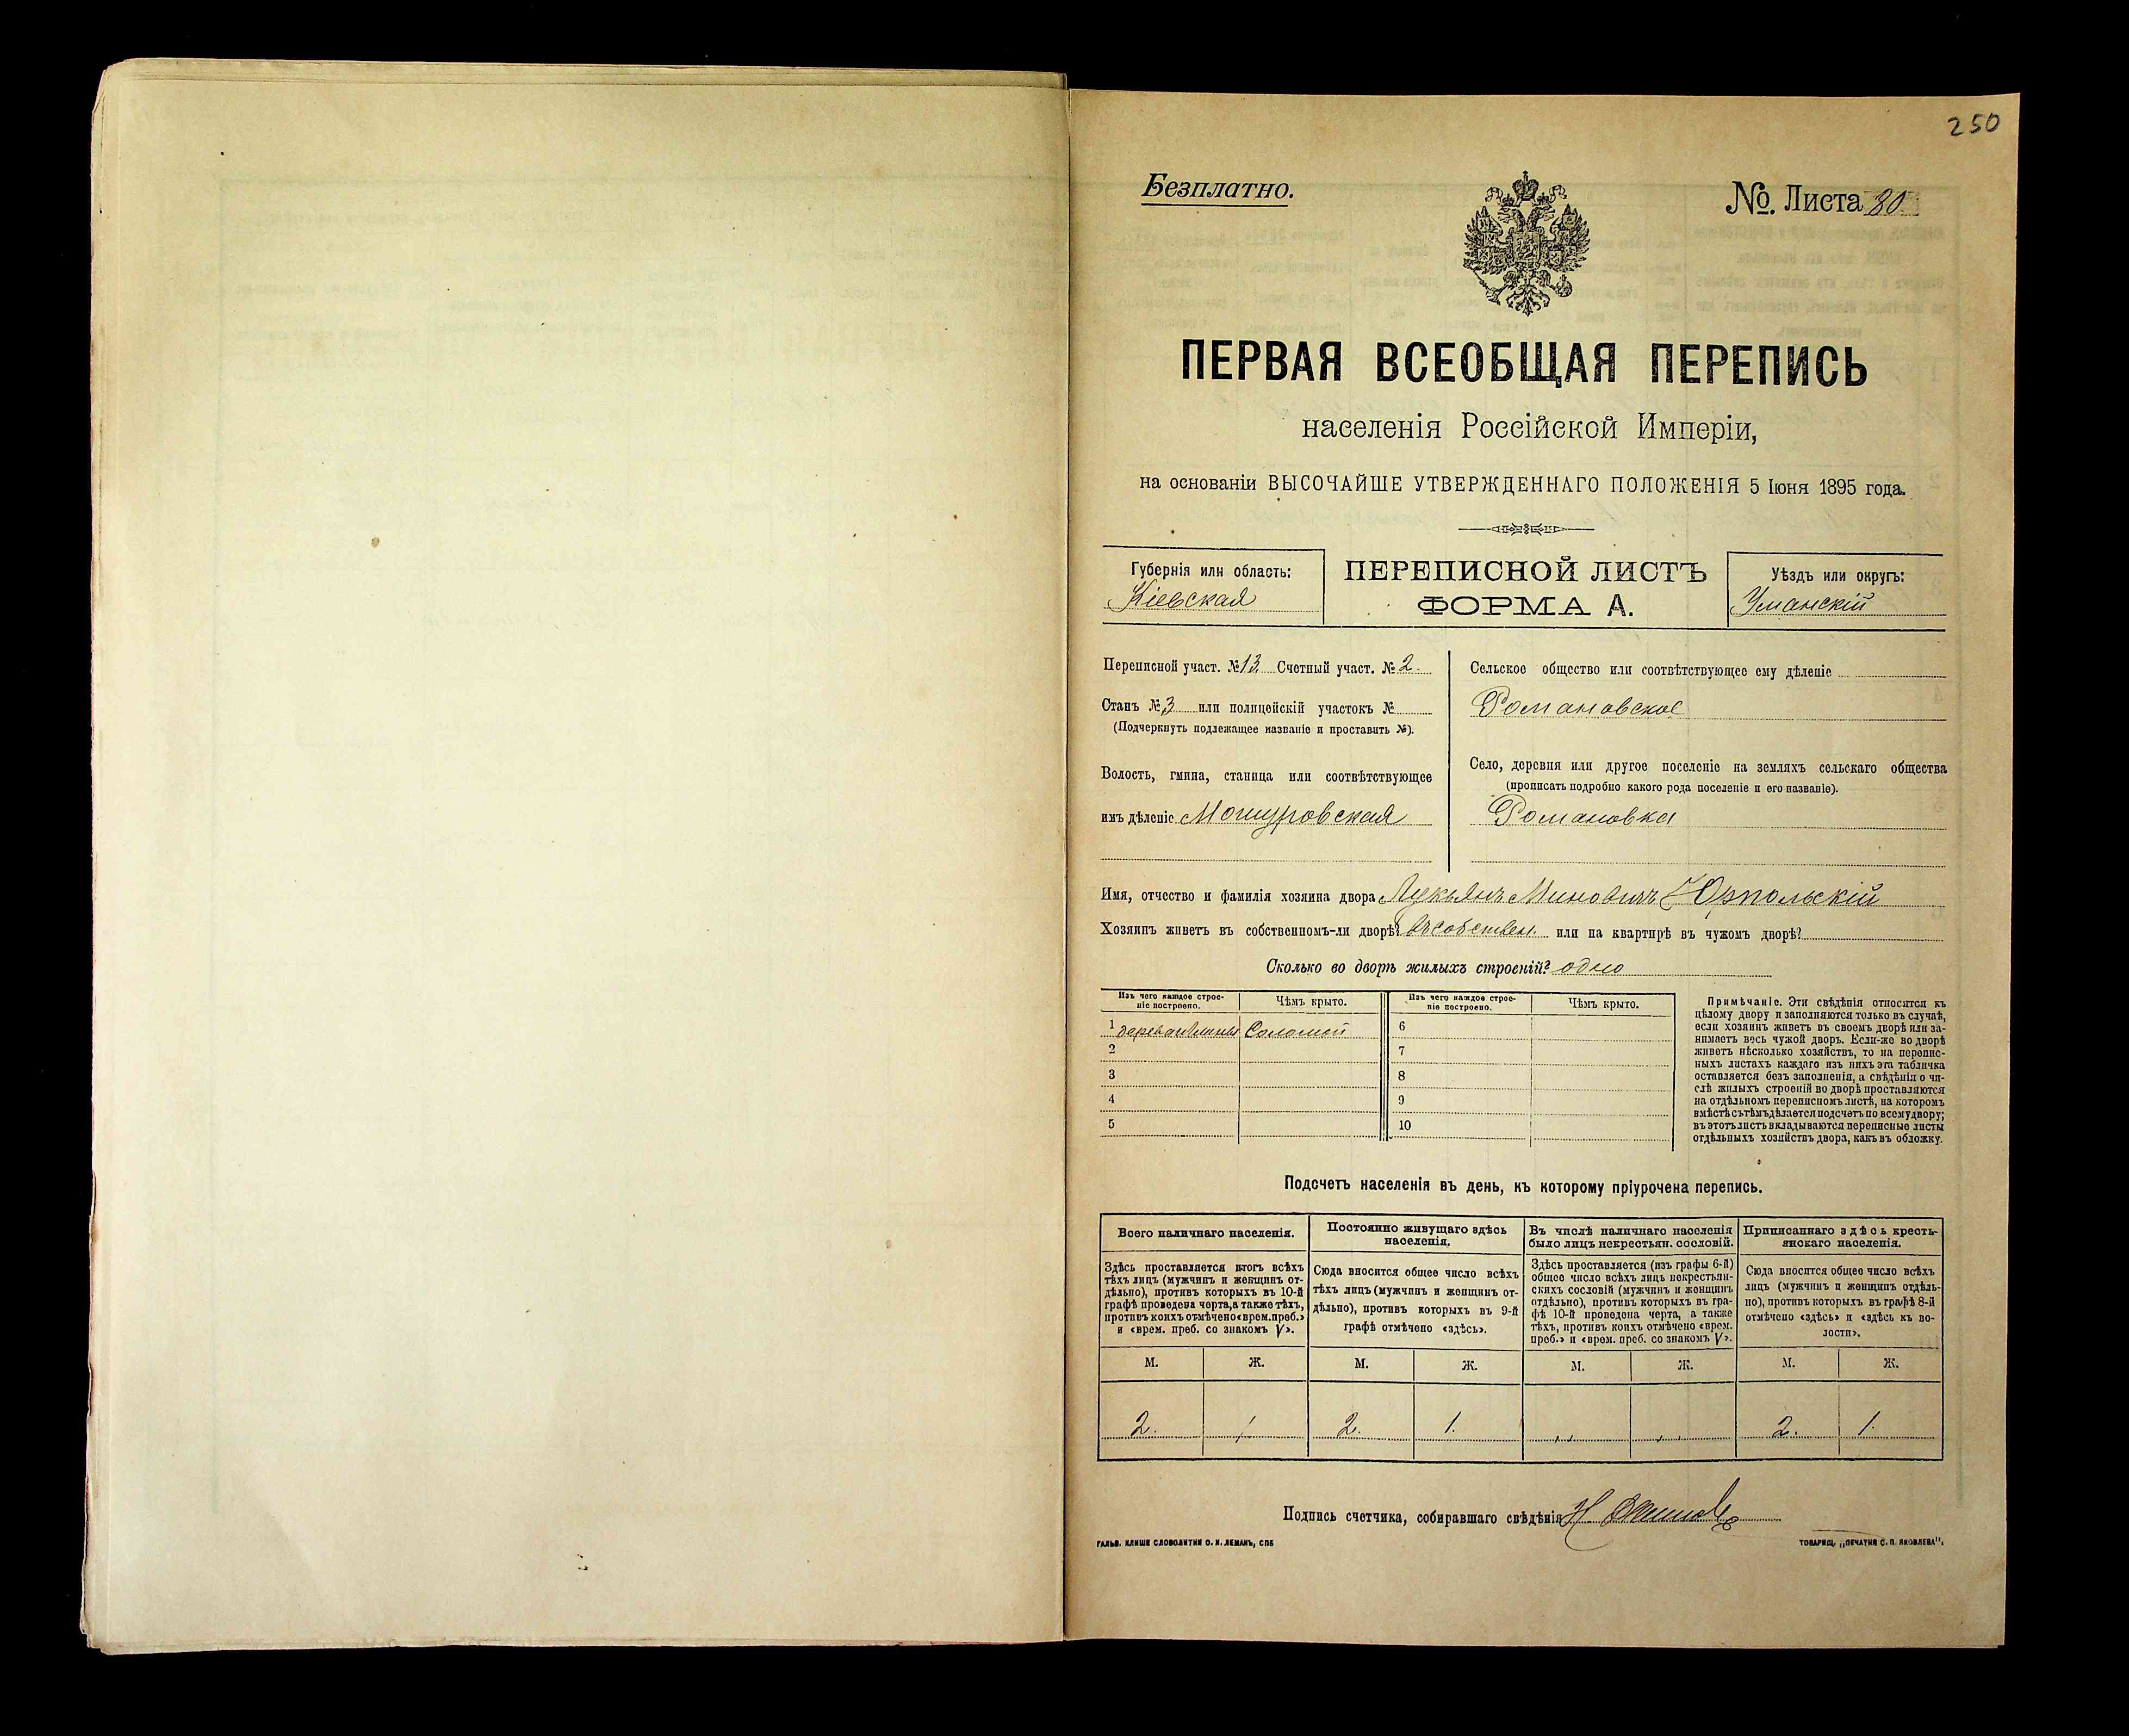 250
Безплатно.
№. Листа 80
ПЕРВАЯ ВСЕОБЩАЯ ПЕРЕПИСЬ
населенія Россійской Имперіи,
на основаніи ВЫСОЧАЙШЕ УТВЕРЖДЕННАГО ПОЛОЖЕНІЯ 5 Іюня 1895 года.
Губернія или область:
Кіевская
ПЕРЕПИСНОЙ ЛИСТЪ
ФОРМА А.
Уѣздъ или округъ:
Уманскій
Переписной участ. № 13. Счетный участ. № 2.
Станъ № 3 или полицейскій участокъ №
(Подчеркнуть подлежащее названіе и проставить №).
Волость, гмина, станица или соотвѣтствующее
имъ дѣленіе Мошуровская
Сельское общество или соотвѣтствующее ему дѣленіе
Романовское
Село, деревня или другое поселеніе на земляхъ сельскаго общества
(прописать подробно какого рода поселеніе и его названіе).
Романовка
Имя, отчество и фамилія хозяина двора Лукьянъ Миновичъ
Хозяинъ живетъ въ собственномъ-ли дворѣ? въ собствен. или на квартирѣ въ чужомъ дворѣ?
Сколько во дворѣ жилыхъ строеній? одно
Изъ чего каждое строе-
ніе построено.
Чѣмъ крыто.
1 Соломой
2
3
4
5
Изъ чего каждое строе-
ніе построено.
Чѣмъ крыто.
6
7
8
9
10
Примѣчаніе. Эти свѣдѣнія относятся къ
цѣлому двору и заполняются только въ случаѣ,
если хозяинъ живетъ въ своемъ дворѣ или за-
нимаетъ весь чужой дворъ. Если-же во дворѣ
живетъ нѣсколько хозяйствъ, то на перепис-
ныхъ листахъ каждаго изъ нихъ эта табличка
оставляется безъ заполненія, а свѣдѣнія о чи-
слѣ жилыхъ строеній во дворѣ проставляются
на отдѣльномъ переписномъ листѣ, на которомъ
вмѣстѣ съ тѣмъ дѣлается подсчетъ по всему двору;
въ этотъ листъ вкладываются переписные листы
отдѣльныхъ хозяйствъ двора, какъ въ обложку.
Подсчетъ населенія въ день, къ которому пріурочена перепись.
Всего наличнаго населенія.
Здѣсь проставляется итогъ всѣхъ
тѣхъ лицъ (мужчинъ и женщинъ от-
дѣльно), противъ которыхъ въ 10-й
графѣ проведена черта, а также тѣхъ,
противъ коихъ отмѣчено «врем. преб.»
и «врем. преб. со знакомъ V».
М. Ж.
2. 1
Постоянно живущаго здѣсь
населенія.
Сюда вносится общее число всѣхъ
тѣхъ лицъ (мужчинъ и женщинъ от-
дѣльно), противъ которыхъ въ 9-й
графѣ отмѣчено «здѣсь».
М. Ж.
2. 1.
Въ числѣ наличнаго населенія
было лицъ некрестьян. сословій.
Здѣсь проставляется (изъ графы 6-й)
общее число всѣхъ лицъ некрестьян-
скихъ сословій (мужчинъ и женщинъ
отдѣльно), противъ которыхъ въ гра-
фѣ 10-й проведена черта, а также
тѣхъ, противъ коихъ отмѣчено «врем.
преб.» и «врем. преб. со знакомъ V».
М. Ж.
„ „
Приписаннаго здѣсь кресть-
янскаго населенія.
Сюда вносится общее число всѣхъ
лицъ (мужчинъ и женщинъ отдѣль-
но), противъ которыхъ въ графѣ 8-й
отмѣчено «здѣсь» и «здѣсь къ во-
лости».
М. Ж.
2. 1.
Подпись счетчика, собиравшаго свѣдѣнія
ГАЛЬВ. КЛИШЕ СЛОВОЛИТНИ О. И. ЛЕМАНЪ, СПБ
ТОВАРИЩ. „ПЕЧАТНЯ С. П. ЯКОВЛЕВА".